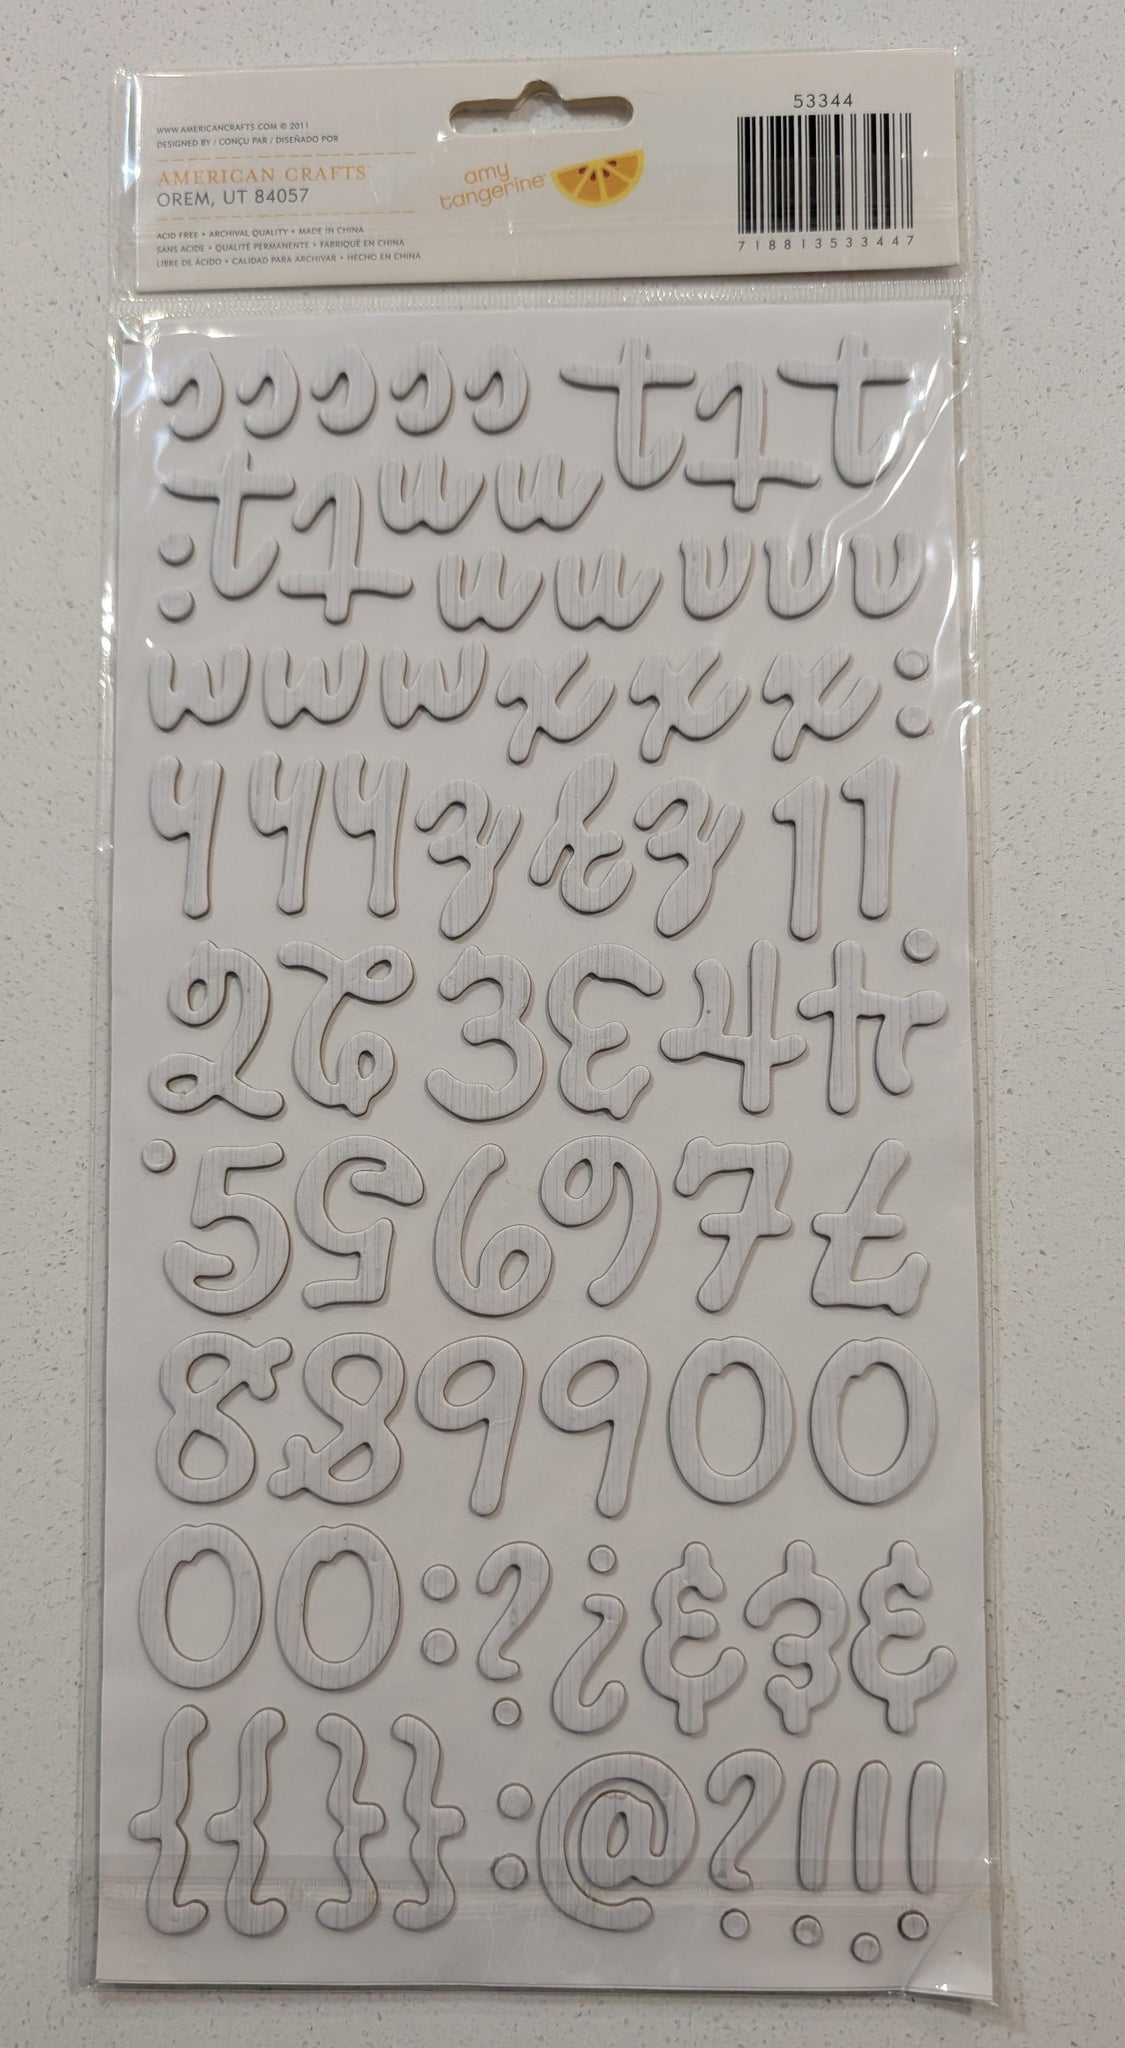 WWW.AMERICANCRAFTS.COM © 2011
DESIGNED BY / CONÇU PAR / DISEÑADO POR
AMERICAN CRAFTS™
OREM, UT 84057
ACID FREE • ARCHIVAL QUALITY • MADE IN CHINA
SANS ACIDE • QUALITÉ PERMANENTE • FABRIQUÉ EN CHINA
LIBRE DE ÁCIDO • CALIDAD PARA ARCHIVAR • HECHO EN CHINA
amy
tangerine
53344
7 18813 53344 7
s s s s s t t t
t t u u
: u u v v v
w w w x x x :
y y y z z z 1 1
2 2 3 3 4 4
5 5 6 6 7 7
8 8 9 9 0 0
0 0 : ? ? & & &
{ { } } : @ ? ! ! !